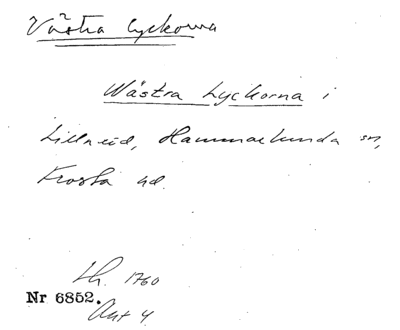 Västra Lyckorna
Wästra Lyckorna i
Lillröd, Hammarlunda sn,
Frosta hd.
Lh. 1760
Nr 6852.
Akt 4